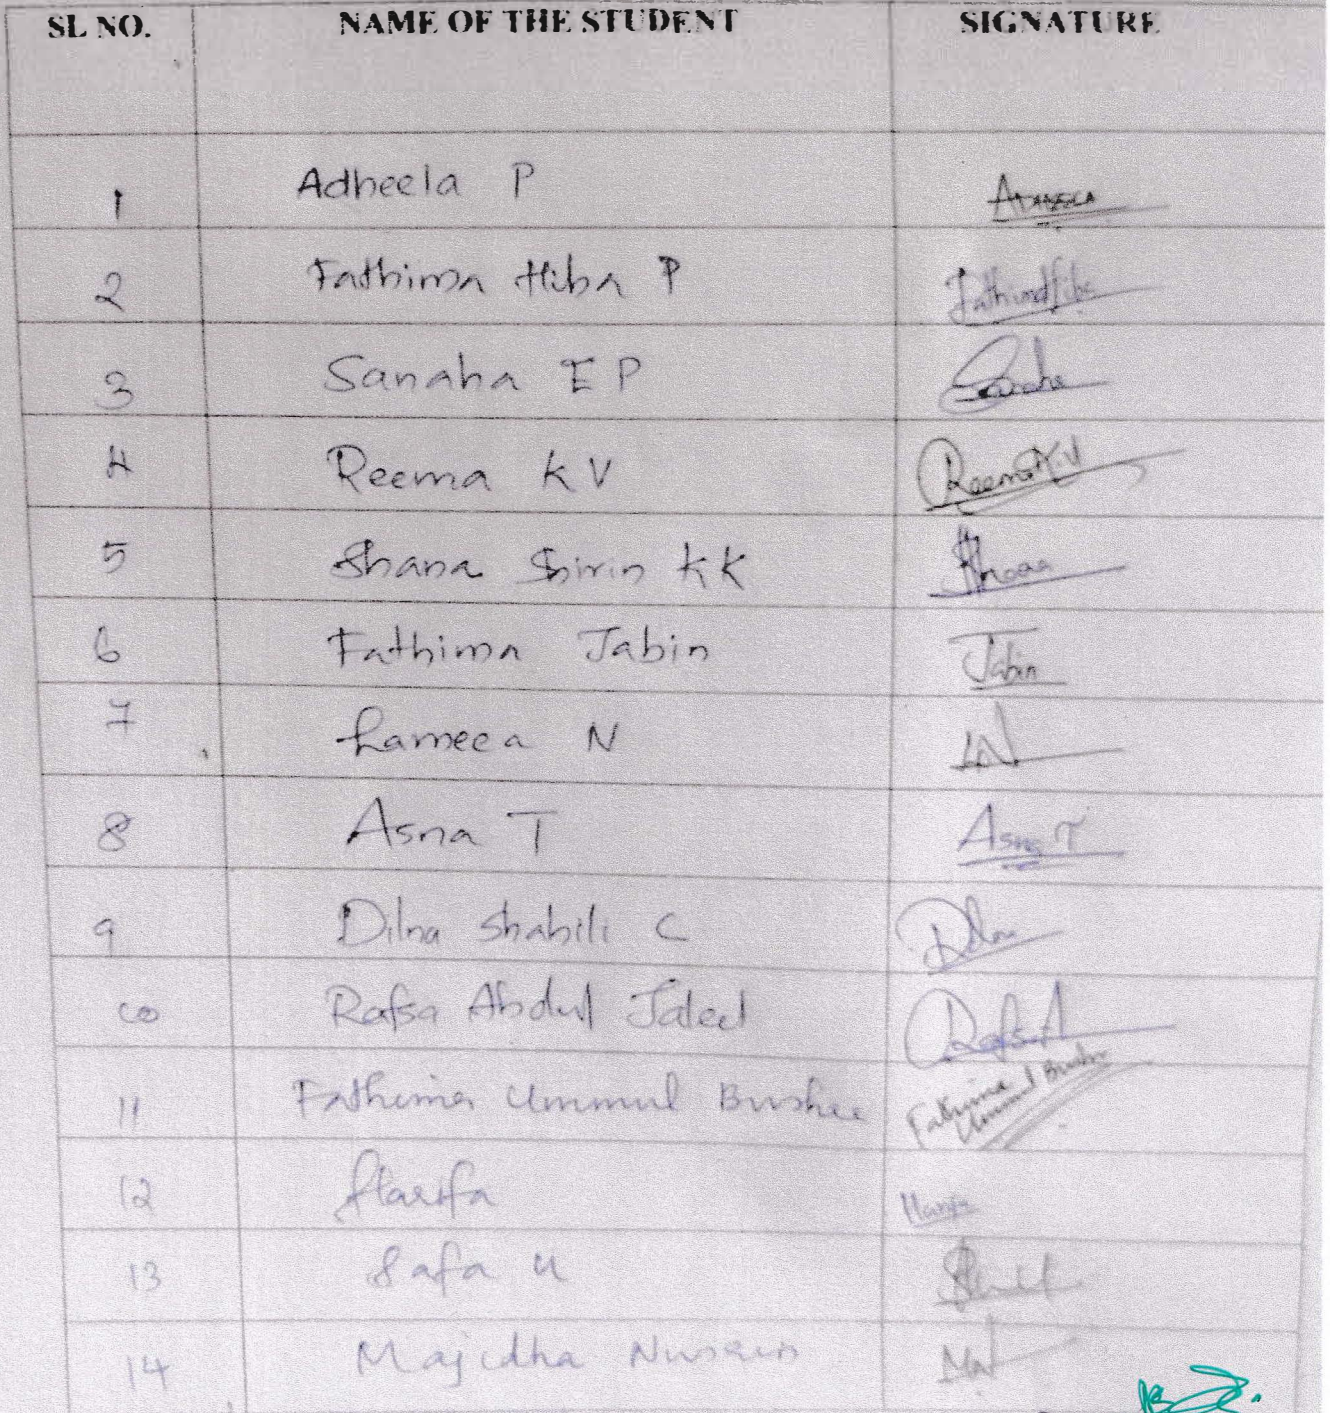 SL NO. NAME OF THE STUDENT SIGNATURE
1 Adheela P Adheela
2 Fathima Hiba P Fathima Hiba
3 Sanaha E P Sanaha
4 Reema K V Reema K.V
5 Shana Shirin KK Shana
6 Fathima Jabin Jabin
7 Lameea N LN
8 Asna T Asna T
9 Dilna Shabili C Dilna
10 Rafsa Abdul Jaleel Rafsa A
11 Fathima Ummul Bushra Fathima Ummul Bushra
12
13 Safa U
14 Majidha